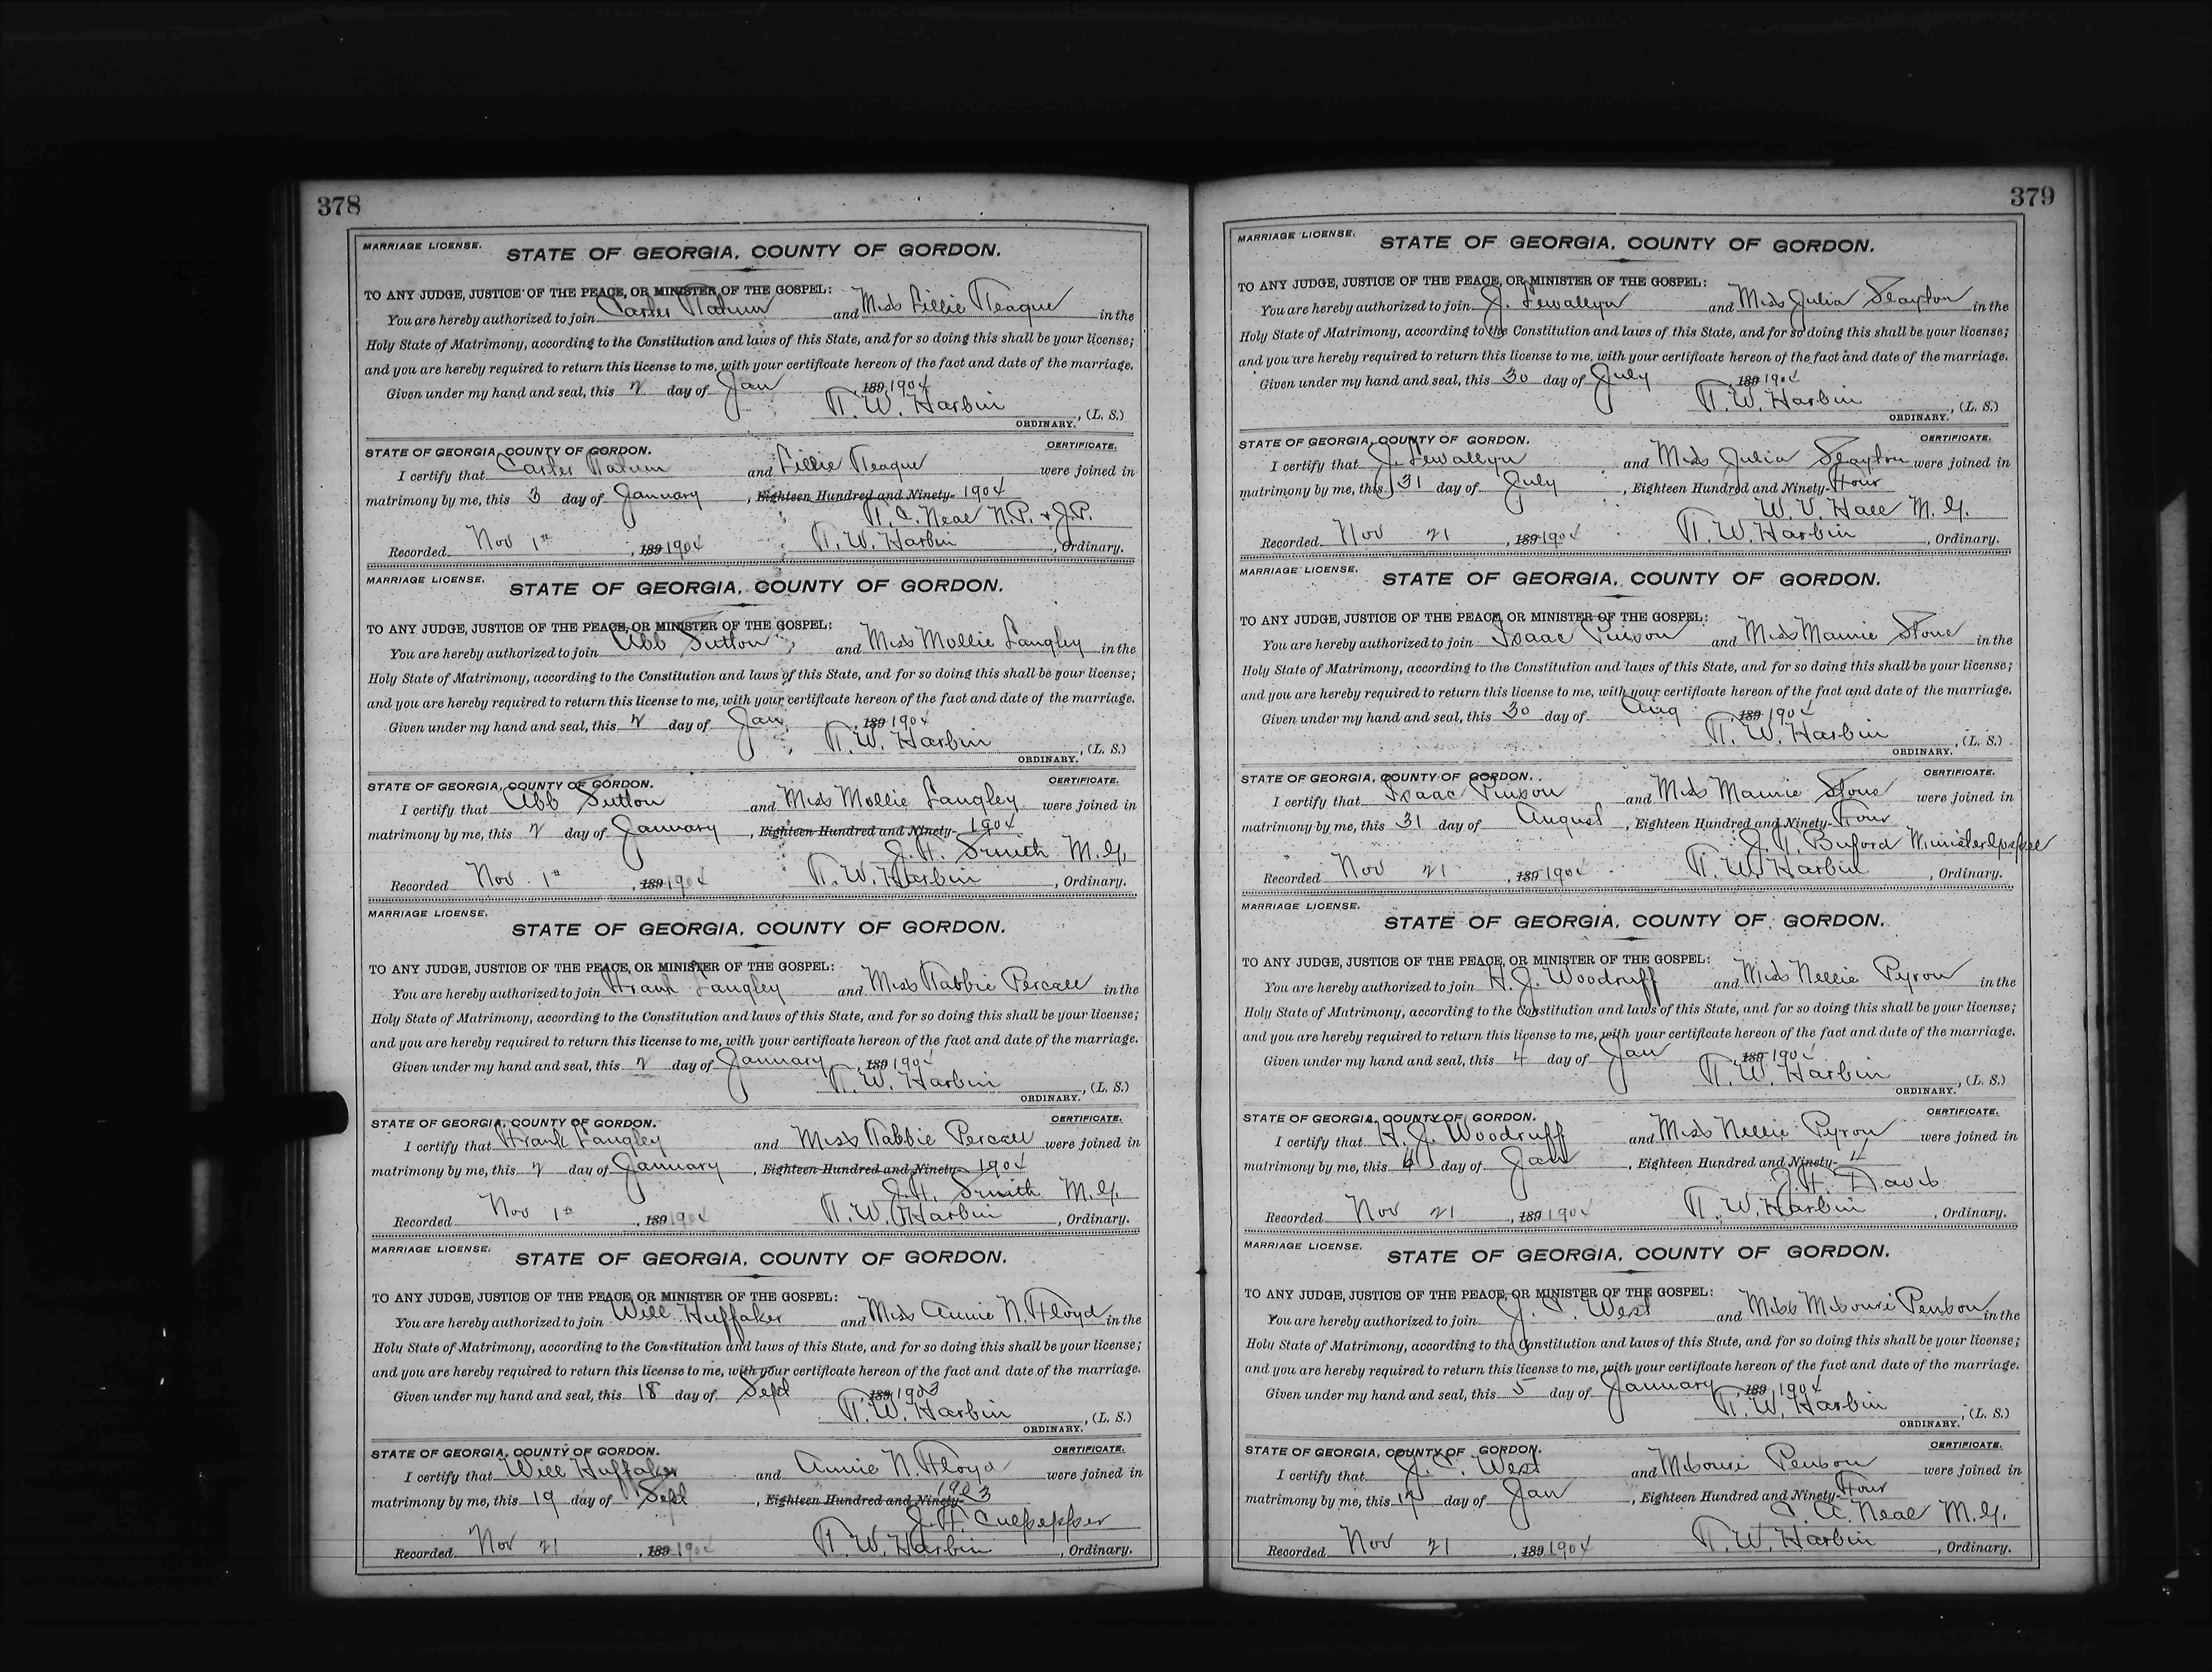 378
MARRIAGE LICENSE.
STATE OF GEORGIA, COUNTY OF GORDON.
TO ANY JUDGE, JUSTICE OF THE PEACE, OR MINISTER OF THE GOSPEL:
You are hereby authorized to join Carter Tatum and Miss Lillie Teague in the
Holy State of Matrimony, according to the Constitution and laws of this State, and for so doing this shall be your license;
and you are hereby required to return this license to me, with your certificate hereon of the fact and date of the marriage.
Given under my hand and seal, this 2 day of Jan 189 1904
T. W. Harbin , (L. S.)
ORDINARY.
STATE OF GEORGIA, COUNTY OF GORDON. CERTIFICATE.
I certify that Carter Tatum and Lillie Teague were joined in
matrimony by me, this 3 day of January , Eighteen Hundred and Ninety- 1904
T. C. Neal N.P. & J.P.
Recorded Nov 1st , 189 1904 T. W. Harbin , Ordinary.
MARRIAGE LICENSE.
STATE OF GEORGIA, COUNTY OF GORDON.
TO ANY JUDGE, JUSTICE OF THE PEACE, OR MINISTER OF THE GOSPEL:
You are hereby authorized to join Abb Sutton and Miss Mollie Langley in the
Holy State of Matrimony, according to the Constitution and laws of this State, and for so doing this shall be your license;
and you are hereby required to return this license to me, with your certificate hereon of the fact and date of the marriage.
Given under my hand and seal, this 2 day of Jan , 189 1904
T. W. Harbin , (L. S.)
ORDINARY.
STATE OF GEORGIA, COUNTY OF GORDON. CERTIFICATE.
I certify that Abb Sutton and Miss Mollie Langley were joined in
matrimony by me, this 2 day of January , Eighteen Hundred and Ninety- 1904
J. H. Smith M.G.
Recorded Nov. 1st , 189 1904 T. W. Harbin , Ordinary.
MARRIAGE LICENSE.
STATE OF GEORGIA, COUNTY OF GORDON.
TO ANY JUDGE, JUSTICE OF THE PEACE, OR MINISTER OF THE GOSPEL:
You are hereby authorized to join Frank Langley and Miss Tabbie Percell in the
Holy State of Matrimony, according to the Constitution and laws of this State, and for so doing this shall be your license;
and you are hereby required to return this license to me, with your certificate hereon of the fact and date of the marriage.
Given under my hand and seal, this 2 day of January , 189 1904
T. W. Harbin , (L. S.)
ORDINARY.
STATE OF GEORGIA, COUNTY OF GORDON. CERTIFICATE.
I certify that Frank Langley and Miss Tabbie Percell were joined in
matrimony by me, this 2 day of January , Eighteen Hundred and Ninety- 1904
J. H. Smith M.G.
Recorded Nov 1st , 189 1904 T. W. Harbin , Ordinary.
MARRIAGE LICENSE.
STATE OF GEORGIA, COUNTY OF GORDON.
TO ANY JUDGE, JUSTICE OF THE PEACE, OR MINISTER OF THE GOSPEL:
You are hereby authorized to join Will Huffaker and Miss Annie N. Floyd in the
Holy State of Matrimony, according to the Constitution and laws of this State, and for so doing this shall be your license;
and you are hereby required to return this license to me, with your certificate hereon of the fact and date of the marriage.
Given under my hand and seal, this 18 day of Sept 189 1903
T. W. Harbin , (L. S.)
ORDINARY.
STATE OF GEORGIA, COUNTY OF GORDON. CERTIFICATE.
I certify that Will Huffaker and Annie N. Floyd were joined in
matrimony by me, this 19 day of Sept , Eighteen Hundred and Ninety- 1903
J. H. Culpepper
Recorded Nov 21 , 189 1904 T. W. Harbin , Ordinary.
379
MARRIAGE LICENSE.
STATE OF GEORGIA, COUNTY OF GORDON.
TO ANY JUDGE, JUSTICE OF THE PEACE, OR MINISTER OF THE GOSPEL:
You are hereby authorized to join J. Lewallyn and Miss Julia Slayton in the
Holy State of Matrimony, according to the Constitution and laws of this State, and for so doing this shall be your license;
and you are hereby required to return this license to me, with your certificate hereon of the fact and date of the marriage.
Given under my hand and seal, this 30 day of July 189 1904
T. W. Harbin , (L. S.)
ORDINARY.
STATE OF GEORGIA, COUNTY OF GORDON. CERTIFICATE.
I certify that J. Lewallyn and Miss Julia Slayton were joined in
matrimony by me, this 31 day of July , Eighteen Hundred and Ninety- Four
W. V. Hall M. G.
Recorded Nov 21 , 189 1904 T. W. Harbin , Ordinary.
MARRIAGE LICENSE.
STATE OF GEORGIA, COUNTY OF GORDON.
TO ANY JUDGE, JUSTICE OF THE PEACE, OR MINISTER OF THE GOSPEL:
You are hereby authorized to join Isaac Pinson and Miss Mamie Stone in the
Holy State of Matrimony, according to the Constitution and laws of this State, and for so doing this shall be your license;
and you are hereby required to return this license to me, with your certificate hereon of the fact and date of the marriage.
Given under my hand and seal, this 30 day of Aug , 189 1904
T. W. Harbin , (L. S.)
ORDINARY.
STATE OF GEORGIA, COUNTY OF GORDON. CERTIFICATE.
I certify that Isaac Pinson and Miss Mamie Stone were joined in
matrimony by me, this 31 day of August , Eighteen Hundred and Ninety- Four
Buford Minister
Recorded Nov 21 , 189 1904 T. W. Harbin , Ordinary.
MARRIAGE LICENSE.
STATE OF GEORGIA, COUNTY OF GORDON.
TO ANY JUDGE, JUSTICE OF THE PEACE, OR MINISTER OF THE GOSPEL:
You are hereby authorized to join H. J. Woodruff and Miss Nellie Pyron in the
Holy State of Matrimony, according to the Constitution and laws of this State, and for so doing this shall be your license;
and you are hereby required to return this license to me, with your certificate hereon of the fact and date of the marriage.
Given under my hand and seal, this 4 day of Jan , 189 1904
T. W. Harbin , (L. S.)
ORDINARY.
STATE OF GEORGIA, COUNTY OF GORDON. CERTIFICATE.
I certify that H. J. Woodruff and Miss Nellie Pyron were joined in
matrimony by me, this day of Jan , Eighteen Hundred and Ninety- 4
J. H. Davis
Recorded Nov 21 , 189 1904 T. W. Harbin , Ordinary.
MARRIAGE LICENSE.
STATE OF GEORGIA, COUNTY OF GORDON.
TO ANY JUDGE, JUSTICE OF THE PEACE, OR MINISTER OF THE GOSPEL:
You are hereby authorized to join West and Miss Misouri Penson in the
Holy State of Matrimony, according to the Constitution and laws of this State, and for so doing this shall be your license;
and you are hereby required to return this license to me, with your certificate hereon of the fact and date of the marriage.
Given under my hand and seal, this 5 day of January , 189 1904
T. W. Harbin , (L. S.)
ORDINARY.
STATE OF GEORGIA, COUNTY OF GORDON. CERTIFICATE.
I certify that West and Misouri Penson were joined in
matrimony by me, this day of Jan , Eighteen Hundred and Ninety- Four
Neal M. G.
Recorded Nov 21 , 189 1904 T. W. Harbin , Ordinary.